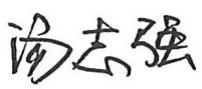 汤志强